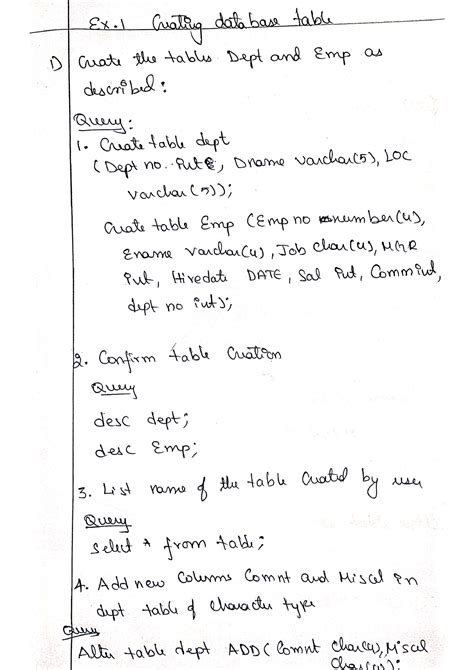 Ex.1 Creating database table
1) Create the tables Dept and Emp as
described:
Query:
1. Create table dept
(Dept no int, Dname varchar(5), LOC
varchar(5));
Create table Emp (Emp no number(4),
Ename varchar(4), Job char(4), MGR
int, Hiredate DATE, Sal int, Comm int,
dept no int);
2. Confirm table Creation
Query
desc dept;
desc Emp;
3. List name of the table Created by user
Query
select * from table;
4. Add new Columns Comnt and Miscel in
dept table of character type
Query
Alter table dept ADD( Comnt char(4), Miscel
char(4));